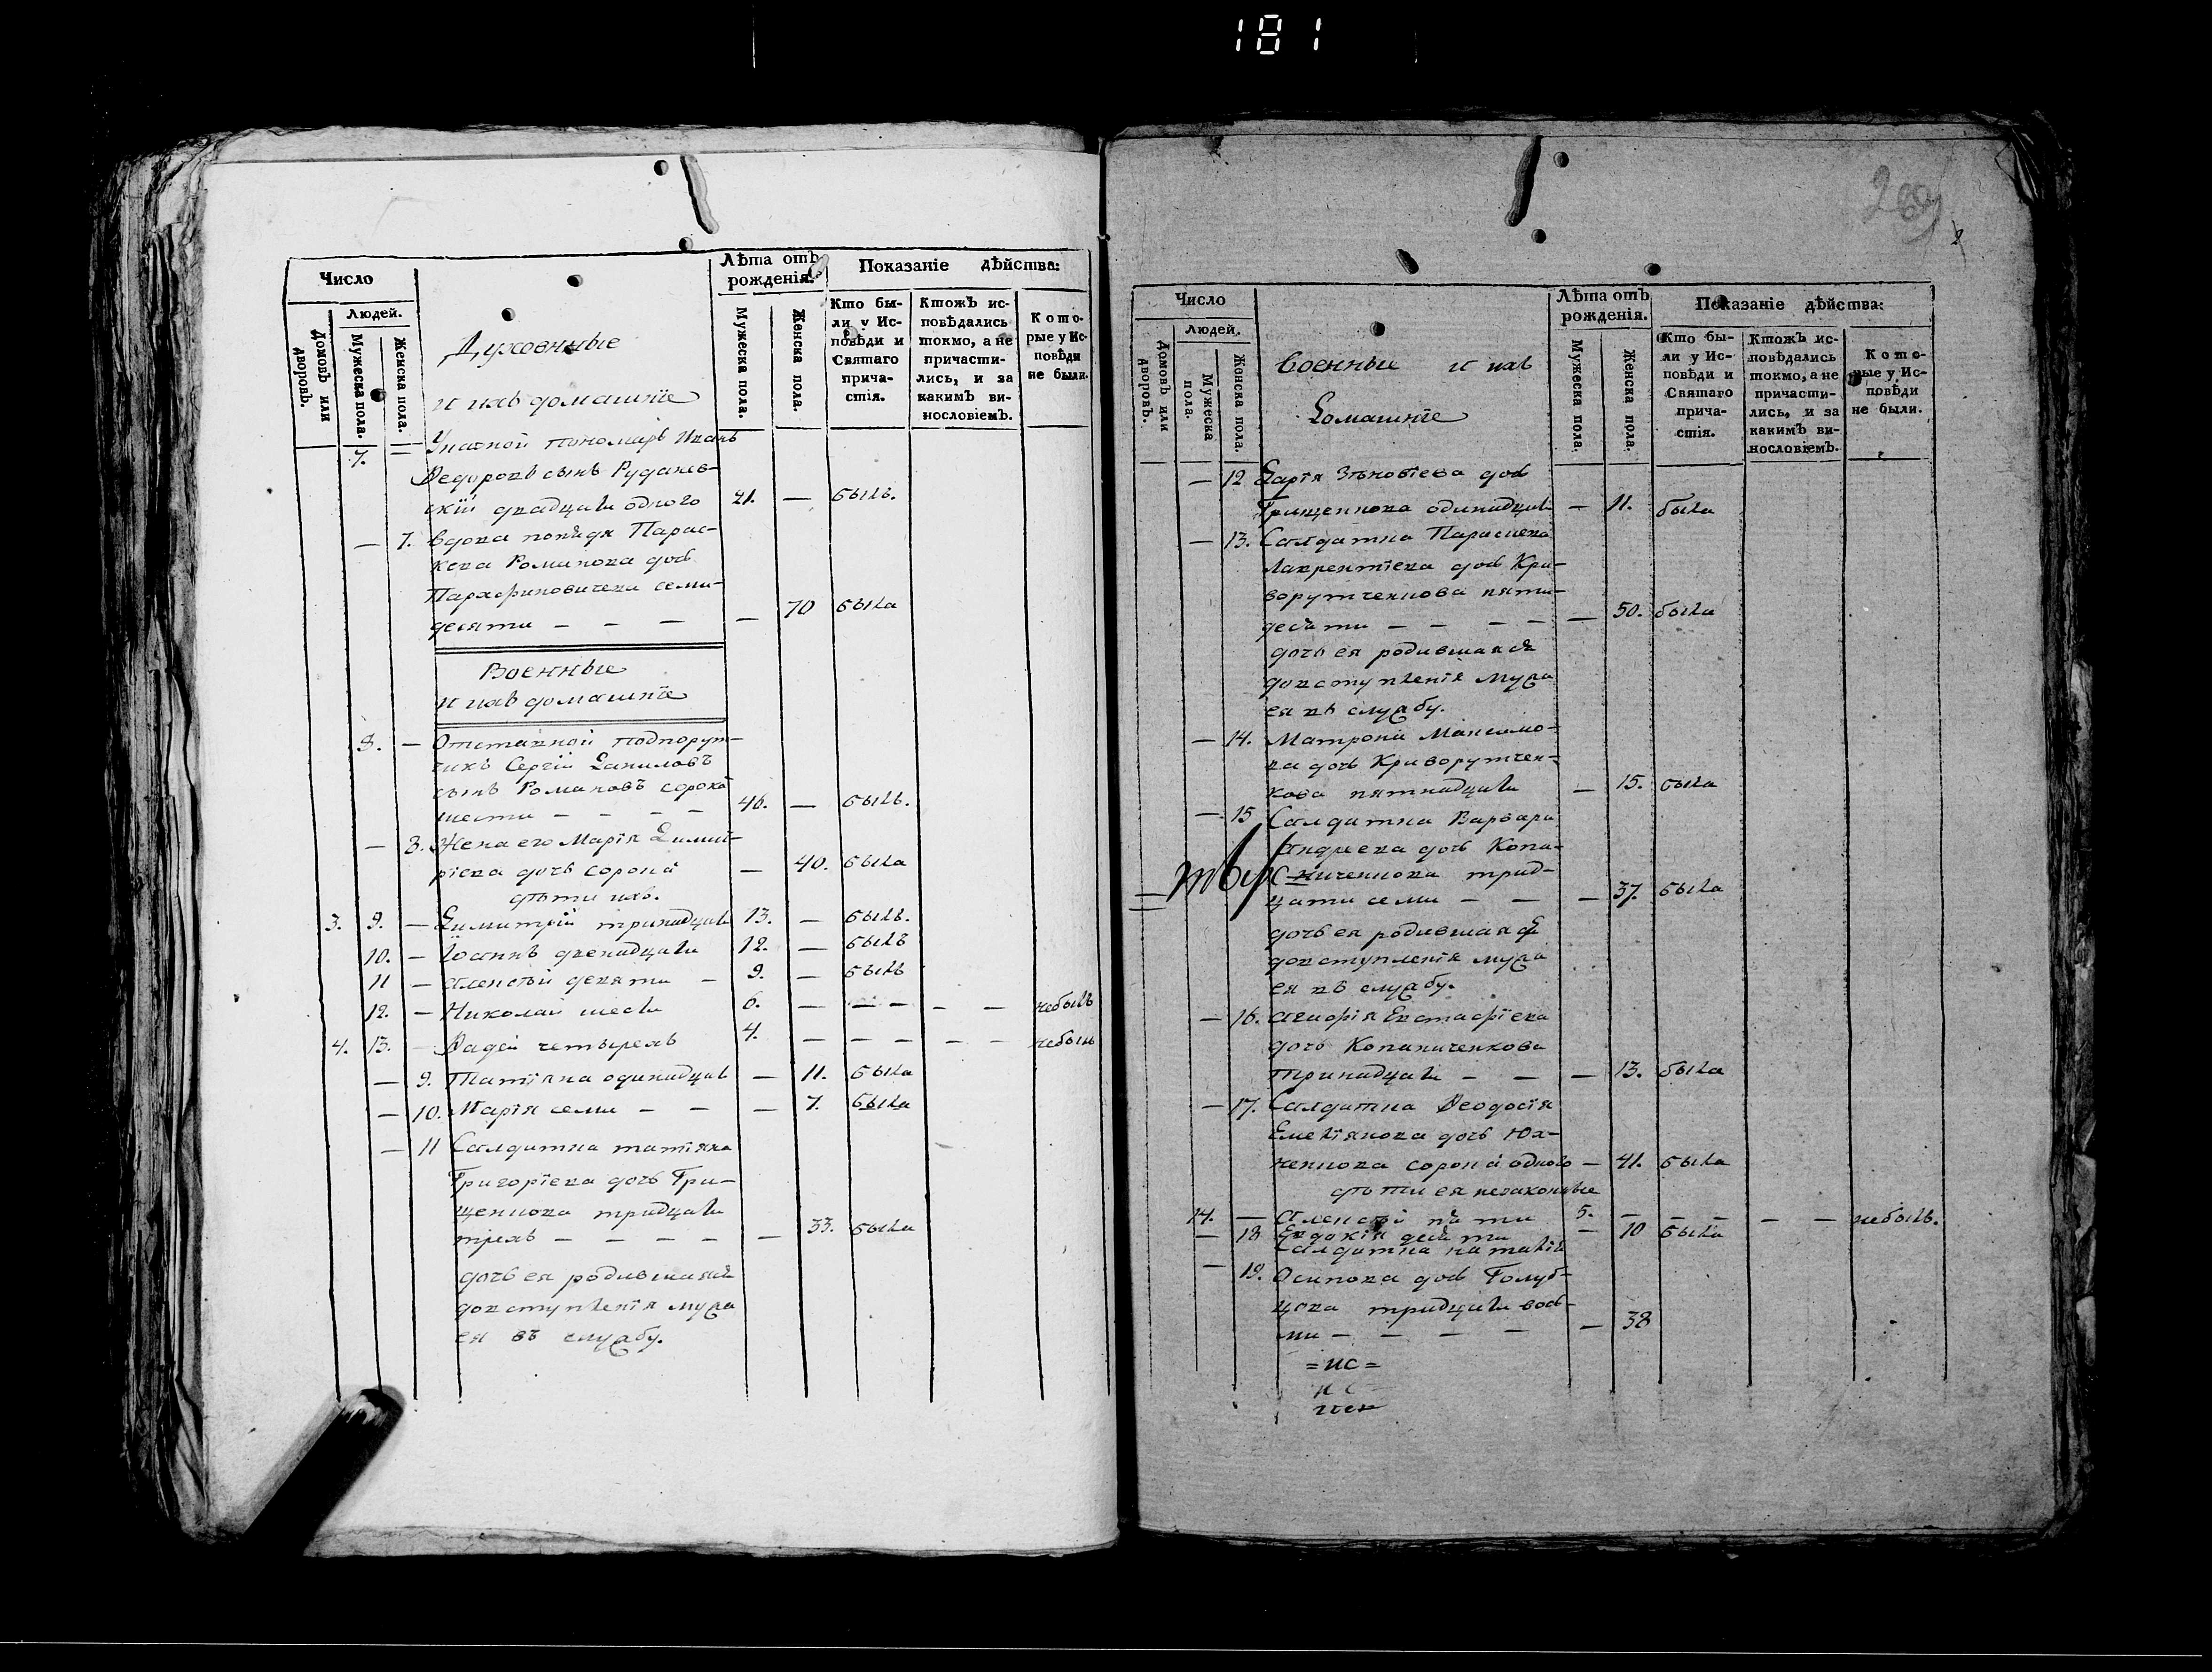 181
Число
Людей.
Домовъ или дворовъ.
Мужеска пола.
Женска пола.
Духовные
и ихъ домашніе
Лѣта отъ рожденія.
Мужеска пола.
Женска пола.
Показаніе дѣйства:
Кто были у Исповѣди и Святаго причастія.
Ктожъ исповѣдались токмо, а не причастились, и за какимъ винословіемъ.
Которые у Исповѣди не были.
7. — пономарь Иванъ
Ѳедоровъ сынъ Рудаков-
скій двадцати одного 21. — былъ.
— 7. вдова попадя Парас-
кева Романова дочь
семи-
десяти — — — — 70 была
Военные
и ихъ домашніе
8. — Отставной подпорут-
чикъ Сергій Даниловъ
сынъ Романовъ сорока
шести — — — — 46. — былъ.
— 8. Жена его Марія Димит-
ріева дочь сорока — 40. была
дѣти ихъ.
3. 9. — Димитрій тринадцати 13. — былъ.
10. — Іоаннъ двенадцати 12. — былъ
11 — Алексѣй девяти — 9. — былъ
12. — Николай шести 6. — — — — — небылъ
4. 13. — Фадей четырехъ 4. — — — — — небылъ
— 9. Татіана одинадцати — 11. была
— 10. Марія семи — — — 7. была
— 11 Салдатка татіана
Григоріева дочь Гри-
щенкова тридцати
трехъ — — — — — 33. была
дочь ея родившаяся
довступленія мужа
ея въ службу.
269
Число
Людей.
Домовъ или дворовъ.
Мужеска пола.
Женска пола.
Военные и ихъ
Домашніе
Лѣта отъ рожденія.
Мужеска пола.
Женска пола.
Показаніе дѣйства:
Кто были у Исповѣди и Святаго причастія.
Ктожъ исповѣдались токмо, а не причастились, и за какимъ винословіемъ.
Которые у Исповѣди не были.
— 12 Дарія Зѣновіева дочь
Грищенкова одинадцати — 11. была
— 13. Салдатка Параскева
Лаврентіева дочь Кри-
ворутченкова пяти-
десяти — — — — — 50. была
дочь ея родившаяся
довступленія мужа
ея въ службу.
— 14. Матрона Максимо-
ва дочь Криворутчен-
кова пятнадцати — 15. была
— 15 Салдатка Варвара
Андреева дочь Копа-
ниченкова трид-
цати семи — — — 37. была
дочь ея родившаяся
довступленія мужа
ея въ службу.
— 16. Агафія Евстафіева
дочь Копаниченкова
тринадцати — — — 13. была
— 17. Салдатка Ѳеодосія
Емеліанова дочь Юх-
ненкова сорока одного — 41. была
дѣти ея незаконные
14. — Алексѣй пяти 5. — — — — — небылъ.
— 18 Евдокія десяти — 10 была
Салдатка наталія
— 19. Осипова дочь Голуб-
цова тридцати вось-
ми — — — — — 38